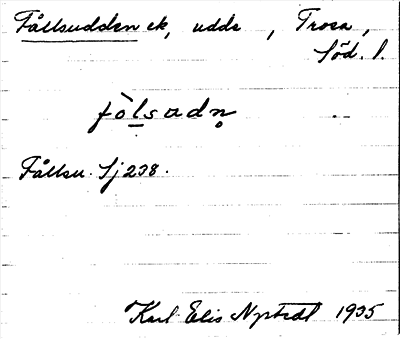 Fållsudden ek, udde , Trosa ,
Söd. l.
fòlsadn̥
Fållsu. Sj 238.
Karl Elis Nystedt 1935